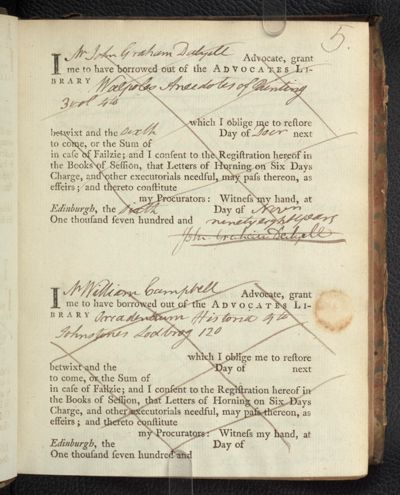 5.
I Mr John Graham Dalyell Advocate, grant
me to have borrowed out of the ADVOCATES LI-
BRARY Walpoles Anecdotes of Painting
3 vol 4to
which I oblige me to restore
betwixt and the sixth Day of Decr next
to come, or the Sum of
in case of Failzie; and I consent to the Registration hereof in
the Books of Session, that Letters of Horning on Six Days
Charge, and other executorials needful, may pass thereon, as
effeirs; and thereto constitute
my Procurators: Witness my hand, at
Edinburgh, the sixth Day of Novr
One thousand seven hundred and ninety eight years
John Graham Dalyell
I Mr William Campbell Advocate, grant
me to have borrowed out of the ADVOCATES LI-
BRARY Orcadensium Historia 4to
Johnstones Lodbrog 120
which I oblige me to restore
betwixt and the Day of next
to come, or the Sum of
in case of Failzie; and I consent to the Registration hereof in
the Books of Session, that Letters of Horning on Six Days
Charge, and other executorials needful, may pass thereon, as
effeirs; and thereto constitute
my Procurators: Witness my hand, at
Edinburgh, the Day of
One thousand seven hundred and